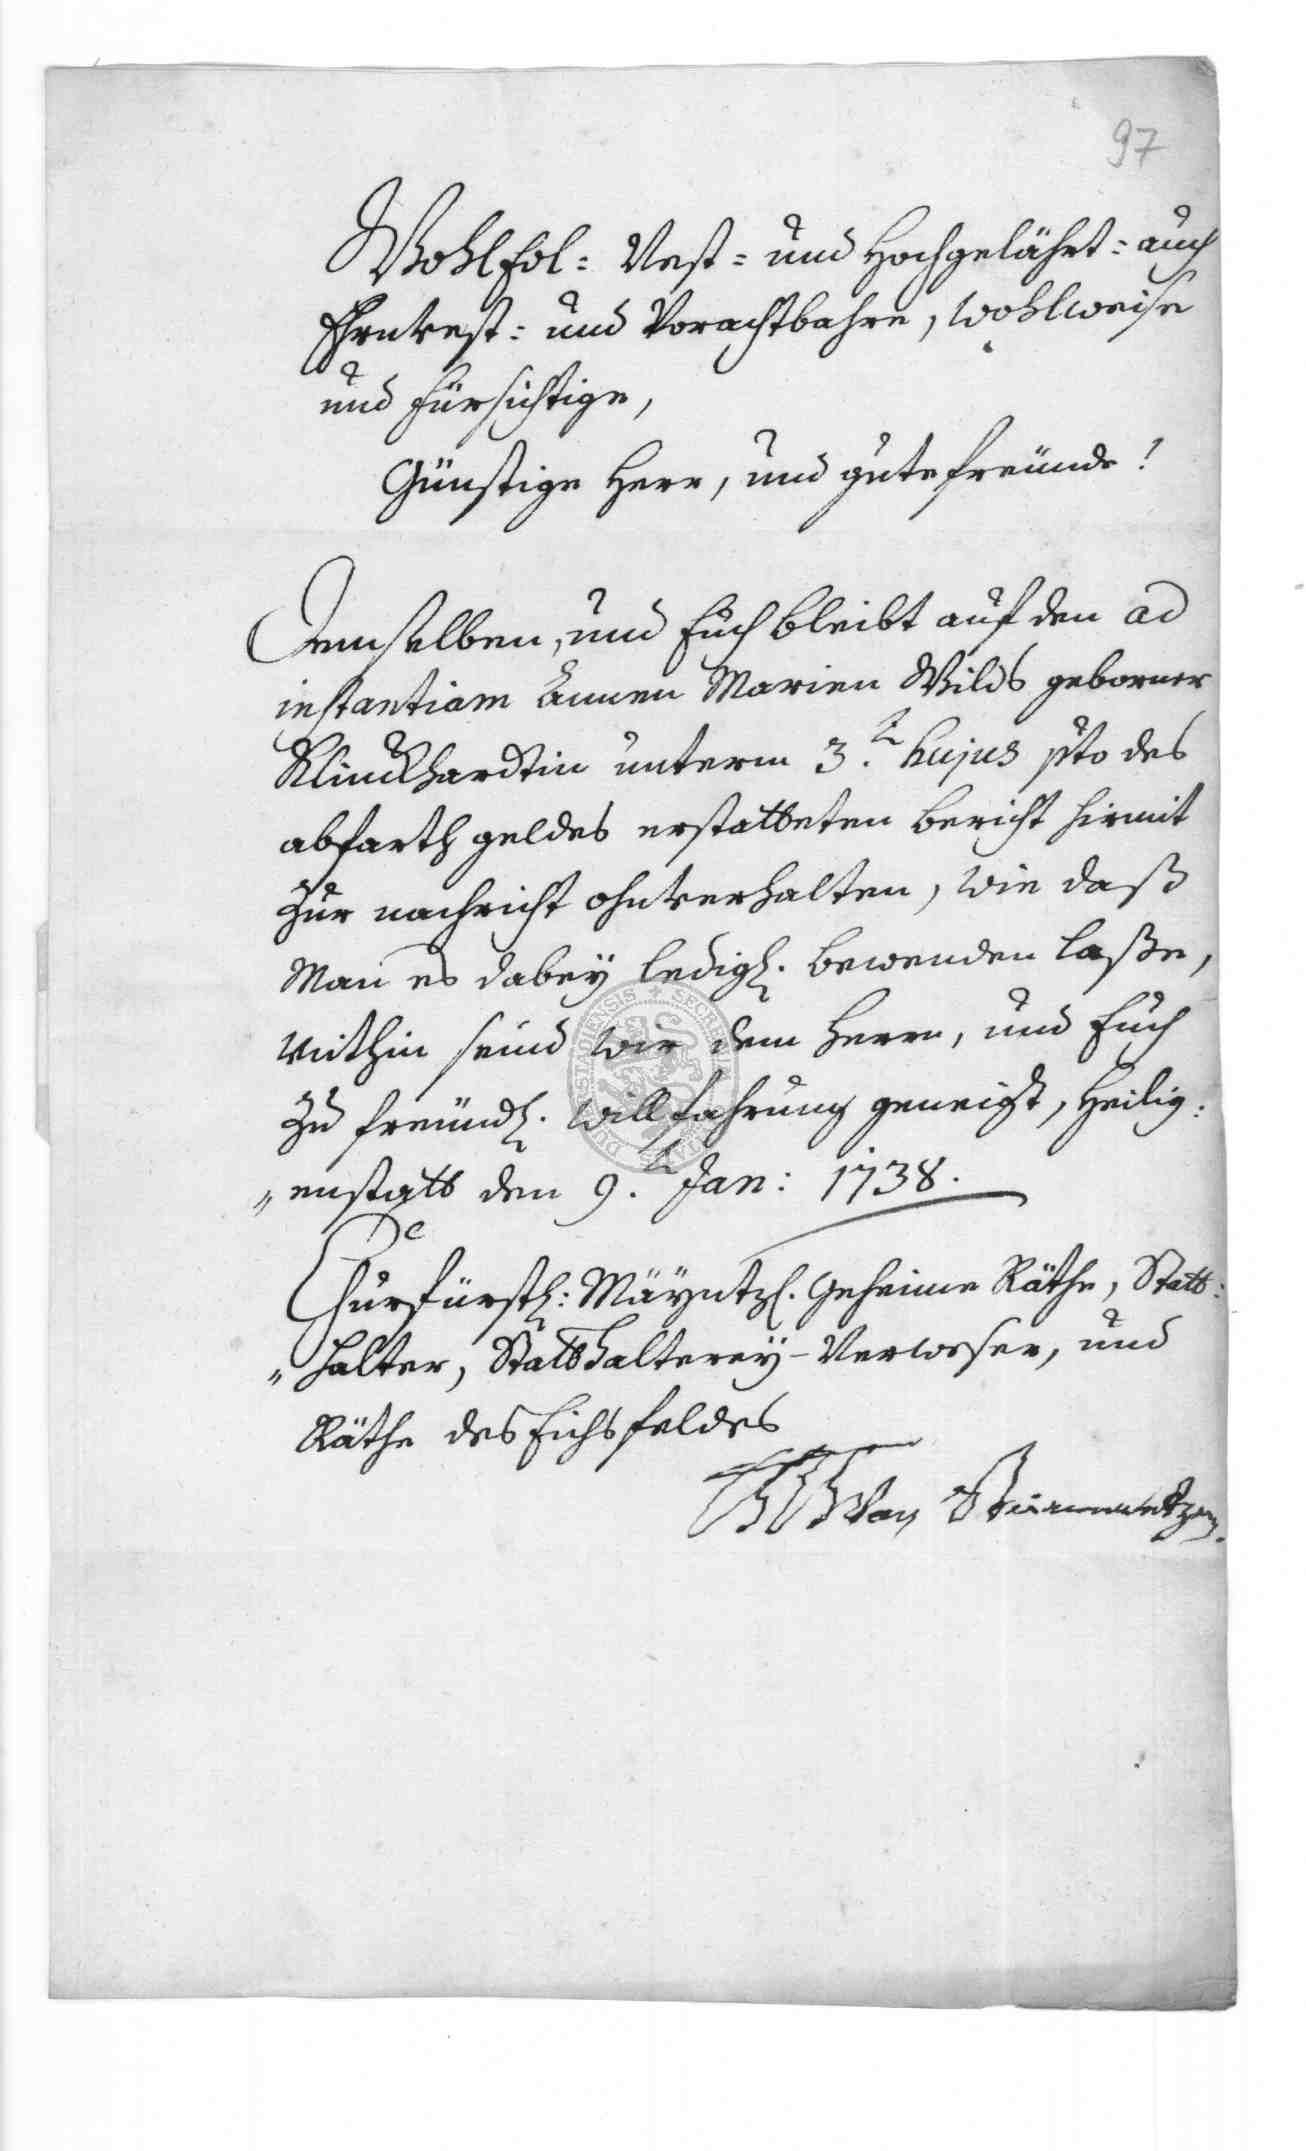 97
WohlEdl: Vest= und Hochgelährt= auch
Ehrnvest= und Vorachtbahre, wohlweise
und Fürsichtige,
Günstige Herr, und gute freünde!
Demselben, und Euch bleibt auf den ad
instantiam Annen Marien Wilds geborner
Klinckhardtin unterm 3.t hujus pto des
abfarth geldes erstatteten bericht hirmit
zur nachricht ohnverhalten, wie daß
Man es dabey ledigl. bewenden laße,
mithin seind wir dem Herrn, und Euch
zu freündl. willfahrung geneigt, Heilig:
„enstatt den 9.t Jan: 1738.
Churfürstl: Mayntzl. Geheime Räthe, Statt:
„halter, Statthalterey-Verweser, und
Räthe des Eichsfeldes
von